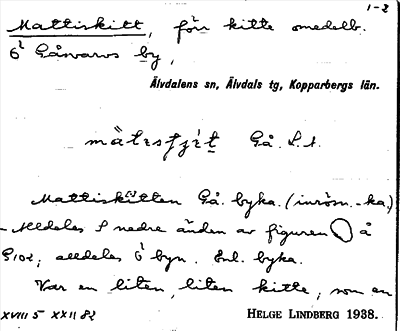 1-2
Mattiskitt, förr kitte omedelb.
6 Gåsvarvs by,
Älvdalens sn, Älvdals tg, Kopparbergs län.
Gå. S. 1.
Mattiskitten Gå. byka. (inröm. -ka.)
Alldeles S nedre änden av figuren å
G102, alldeles 6 byn. Enl. byka.
Var en liten, liten kitte, som en
XVIII 5 XXII 82 HELGE LINDBERG 1938.